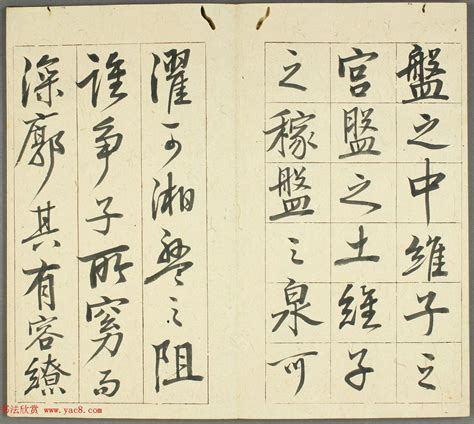 盤之中維子之
宮盤之土維子
之稼盤之泉可
濯可湘盤之阻
誰爭子所窈而
深廓其有容繚
书法欣赏 www.yac8.com